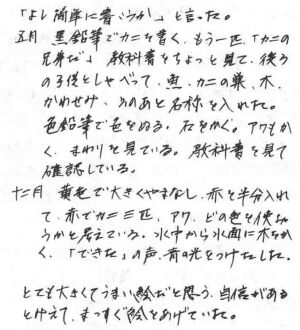 「よし簡単に書こうか」と言った。
五月 黒鉛筆でカニを書く、もう一匹、「カニの
兄弟だ」教科書をちょっと見て、後ろ
の子供としゃべって、魚、カニの巣、木、
かわせみ、そのあと名称を入れた。
色鉛筆で色をぬる。石をかく。アワもか
く、まわりを見ている。教科書を見て
確認している。
十二月 黄色で大きくやまなし、赤を半分入れ
て、赤でカニ三匹、アワ、どの色を使お
うかと考えている。水中から水面に木をか
く、「できた」の声、青の光をつけたした。
とても大きくてうまい絵だと思う、自信がある
とけえて、まっすぐ絵をあげていた。